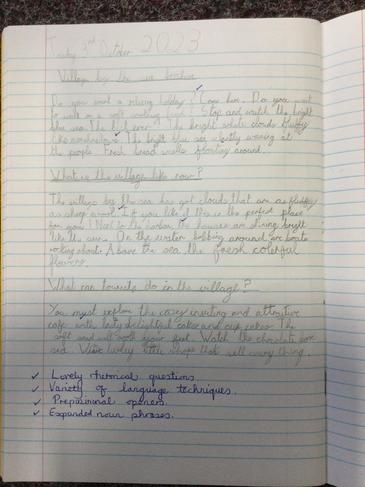 Tuesday 3rd October 2023
Village by the sea brochure
Do you want a relaxing holiday? Come here. Do you want
to walk on a soft sand? Stop and watch the bright
blue sea. The bright white clouds fluffy
like . The bright blue sea waving at
the people. Fresh bread smells floating around.
What is the village like now?
The village by the sea has got clouds that are as fluffy
as sheep . If you like it this is the perfect place
for you! Next to the harbor, the houses are shining bright
like the sun. On the water bobbing around are boats
rocking about. Above the sea the fresh colorful
flowers.
What can tourists do in the village?
You must explore the cosy inviting and attractive
cafe with delighted cakes and cup cakes. The
soft sand will your feet. Watch the
sea. Visit little shops that sell every thing.
✓ Lovely rhetorical questions.
✓ Variety of language techniques.
✓ Prepositional openers.
✓ Expanded noun phrases.